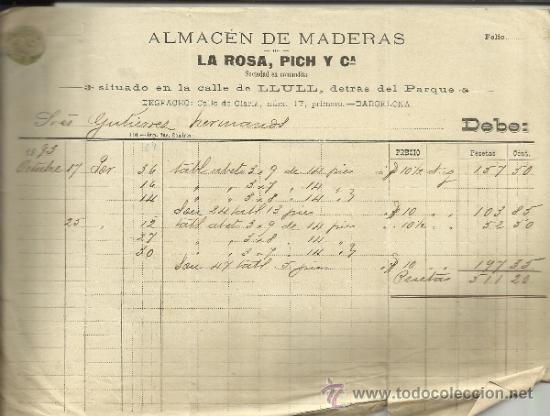 Folio
ALMACÉN DE MADERAS
DE
LA ROSA, PICH Y Cª
Sociedad en comandita
situado en la calle de LLULL, detrás del Parque
DESPACHO: Calle de Claris, núm. 17, primero.—BARCELONA
Sres Gutierrez hermanos
Debe:
PRECIO Pesetas Cent.
1893
Octubre 17 Por 36 tabl abeto 3 x 9 de 14 pies á $ 10½ 157 50
16 " " 3 x 7 " 14 "
14 " " 3 x 8 " 14 "
Son 24 tabl 13 pies $ 10 " " 103 85
25 " 12 tabl abeto 3 x 9 de 14 pies " 10½ " " 52 50
27 " " 3 x 8 " 14 "
30 " " 3 x 7 " 14 "
Son 47 tabl 5 pies $ 10 197 35
Pesetas 511 20
todocoleccion.net